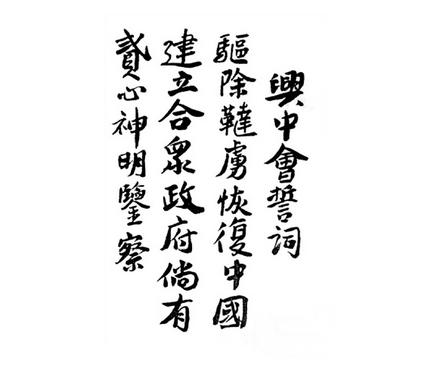 興中會誓詞
驅除韃虜恢復中國
建立合衆政府倘有
貳心神明鑒察